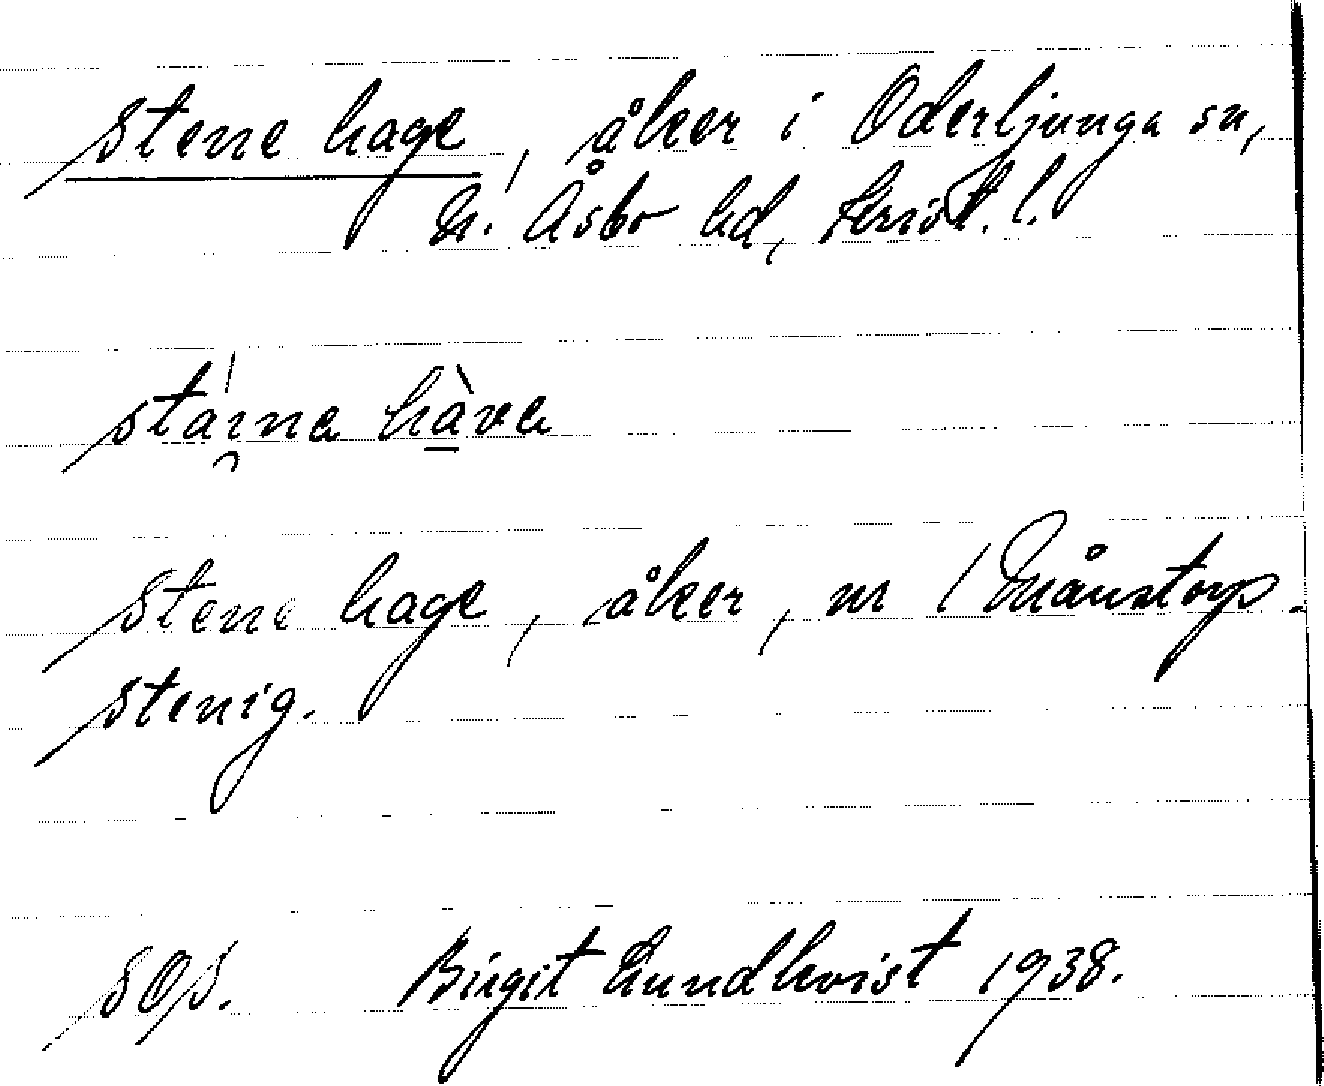 stene hage, åker i Oderljunga sn,
N. Åsbo hd, Krist. l.
stai̯na hàva
stene hage, åker, nr 1 Månstorp.
stenig.
SOS. Birgit Lundkvist 1938.